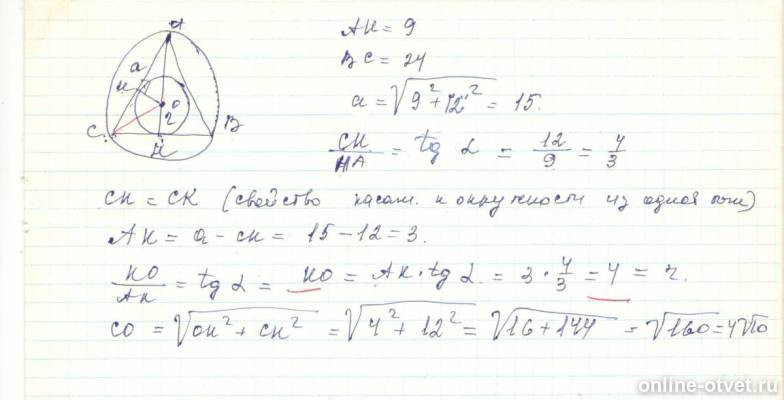 A
a
K
O
r
C
B
H
AH = 9
BC = 24
a = √(9² + 12²) = 15.
CH/HA = tg α = 12/9 = 4/3
CH = CK (свойство касат. к окружности из одной точки)
AK = a - CH = 15 - 12 = 3.
KO/AK = tg α = KO = AK · tg α = 3 · 4/3 = 4 = r.
CO = √(OH² + CH²) = √(4² + 12²) = √(16 + 144) = √160 = 4√10
online-otvet.ru